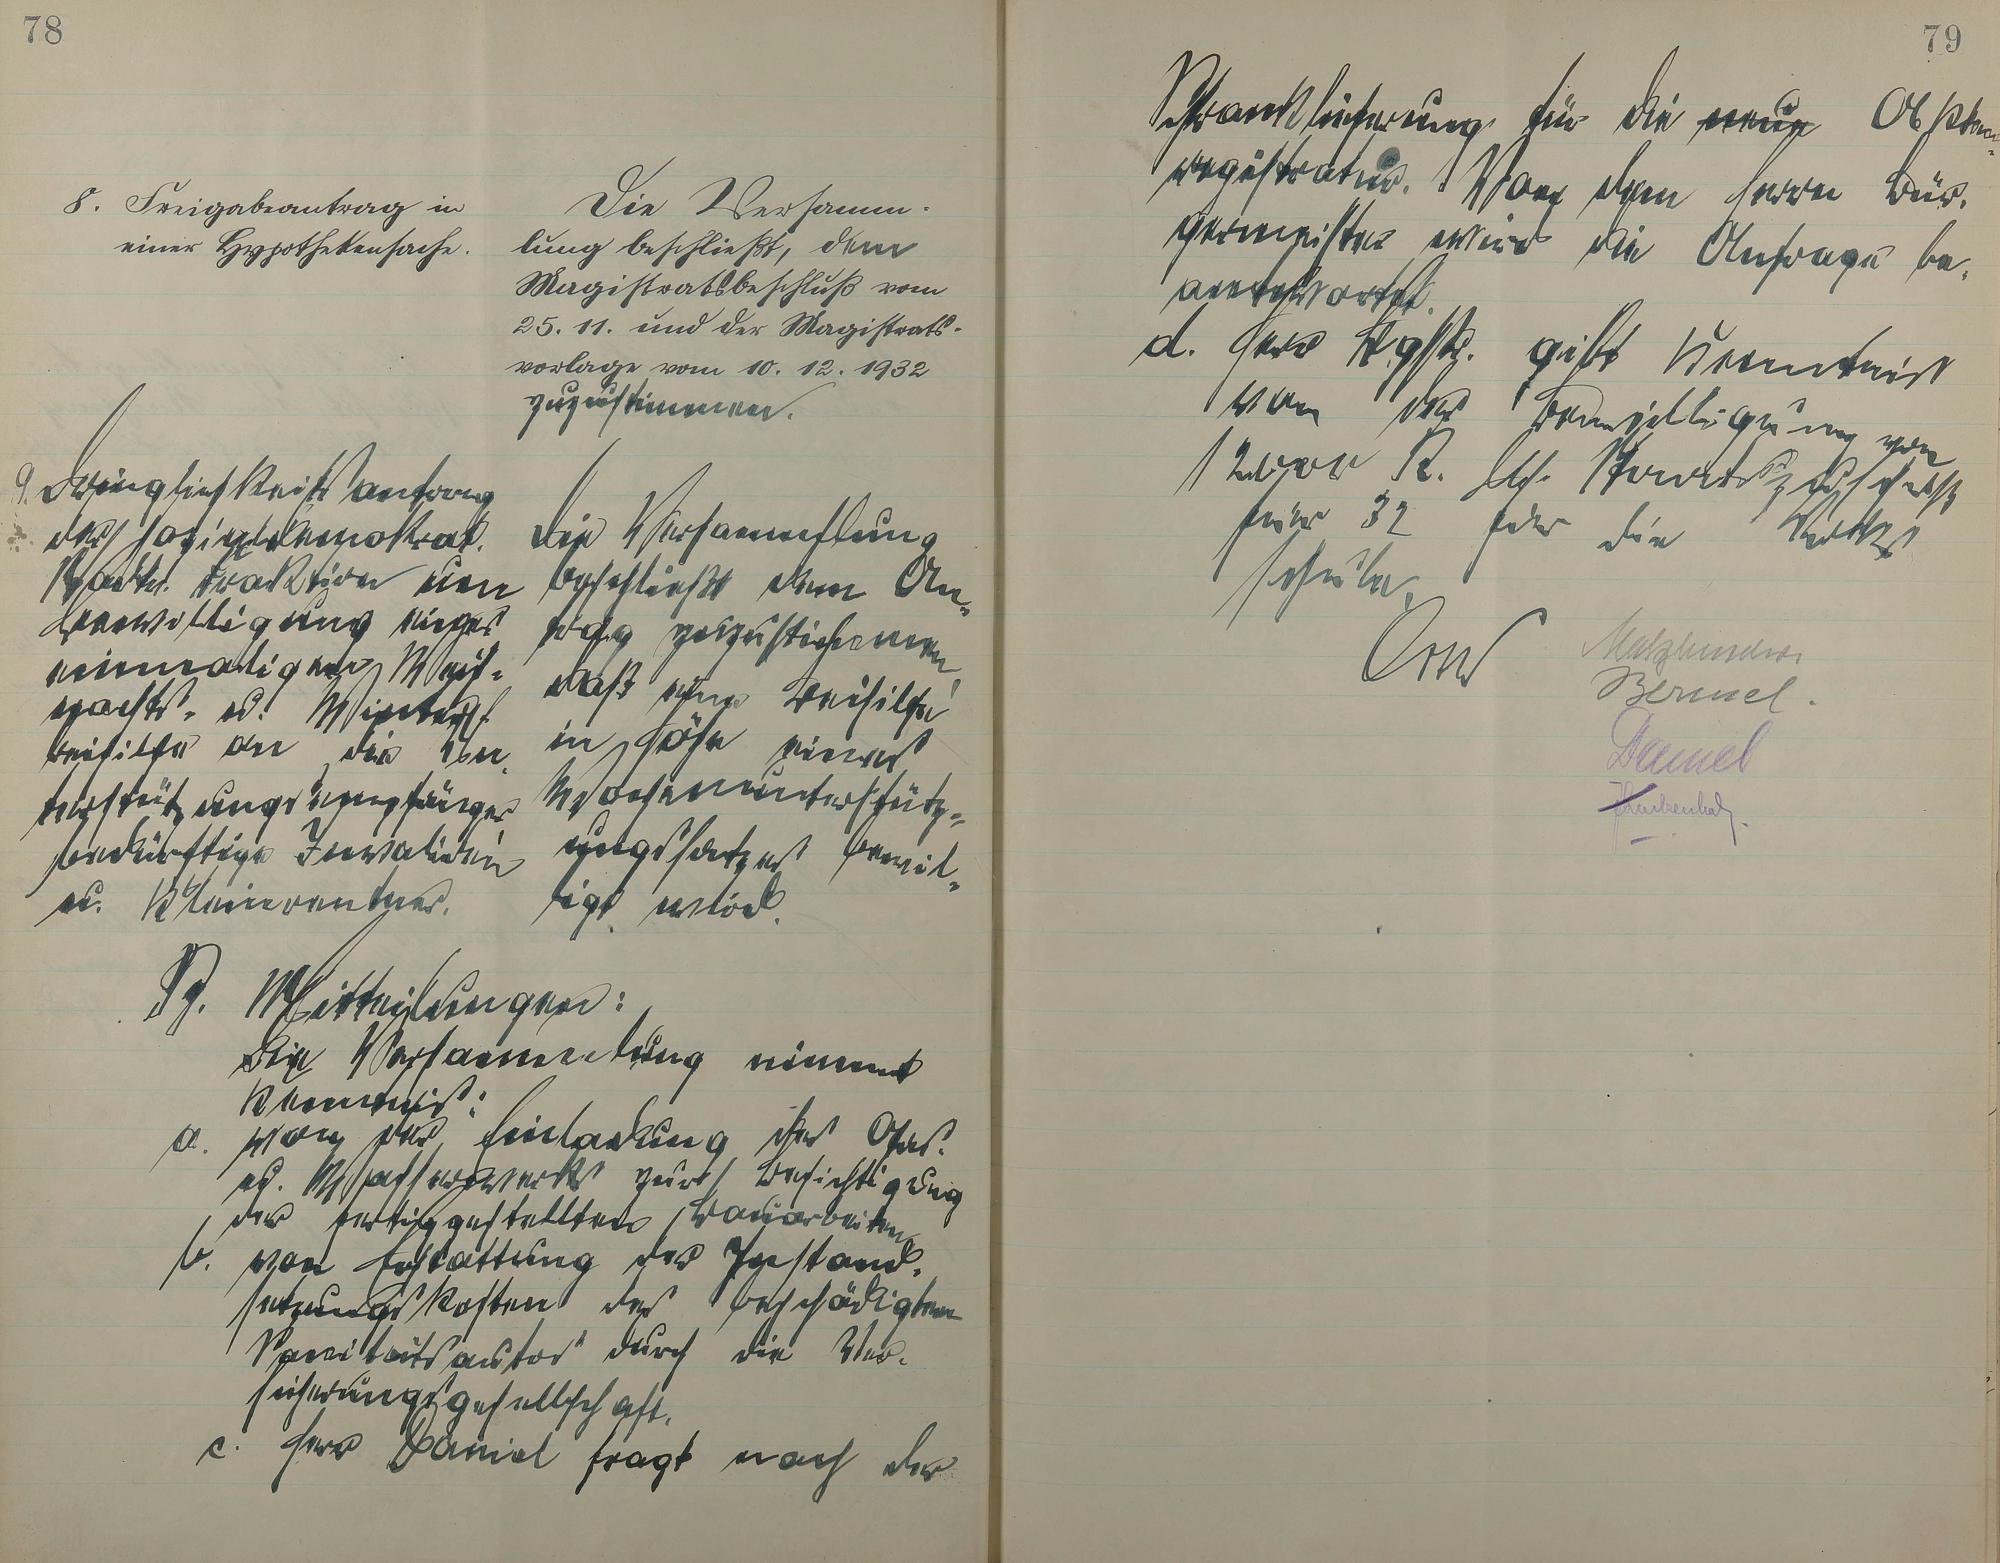 78
8. Freigabeantrag in
einer Hypothekensache.
Die Versamm-
lung beschließt, dem
Magistratsbeschluß vom
25. 11. und der Magistrats-
vorlage vom 10. 12. 1932
zuzustimmen.
9. Dringlichkeitsantrag
der sozialdemokrat.
Partei Fraktion um
Bewilligung einer
einmaligen Weih-
nachts- u. Winter-
beihilfe an die Un-
terstützungsempfänger
bedürftige Invaliden
u. Kleinrentner.
Die Versammlung
beschließt dem An-
trag zuzustimmen,
daß eine Beihilfe
in Höhe eines
Wochenunterstütz-
ungssatzes bewil-
ligt wird.
Mitteilungen:
Die Versammlung nimmt
Kenntnis:
a. von der Einladung des Gas-
u. Wasserwerks zur Besichtigung
der fertiggestellten Bauarbeiten
b. von Erstattung der Instand-
setzungskosten des beschädigten
Sanitätsautos durch die Ver-
sicherungsgesellschaft.
c. Herr Daniel fragt nach der
79
Schranklieferung für die neue Akten-
registratur. Von dem Herrn Bür-
germeister wird die Anfrage be-
antwortet.
d. Herr Bgstr. gibt Kenntnis
von der Bewilligung von
12000 R. M. Staatszuschuß
für 32 für die
schule.
Bermel.
Daniel